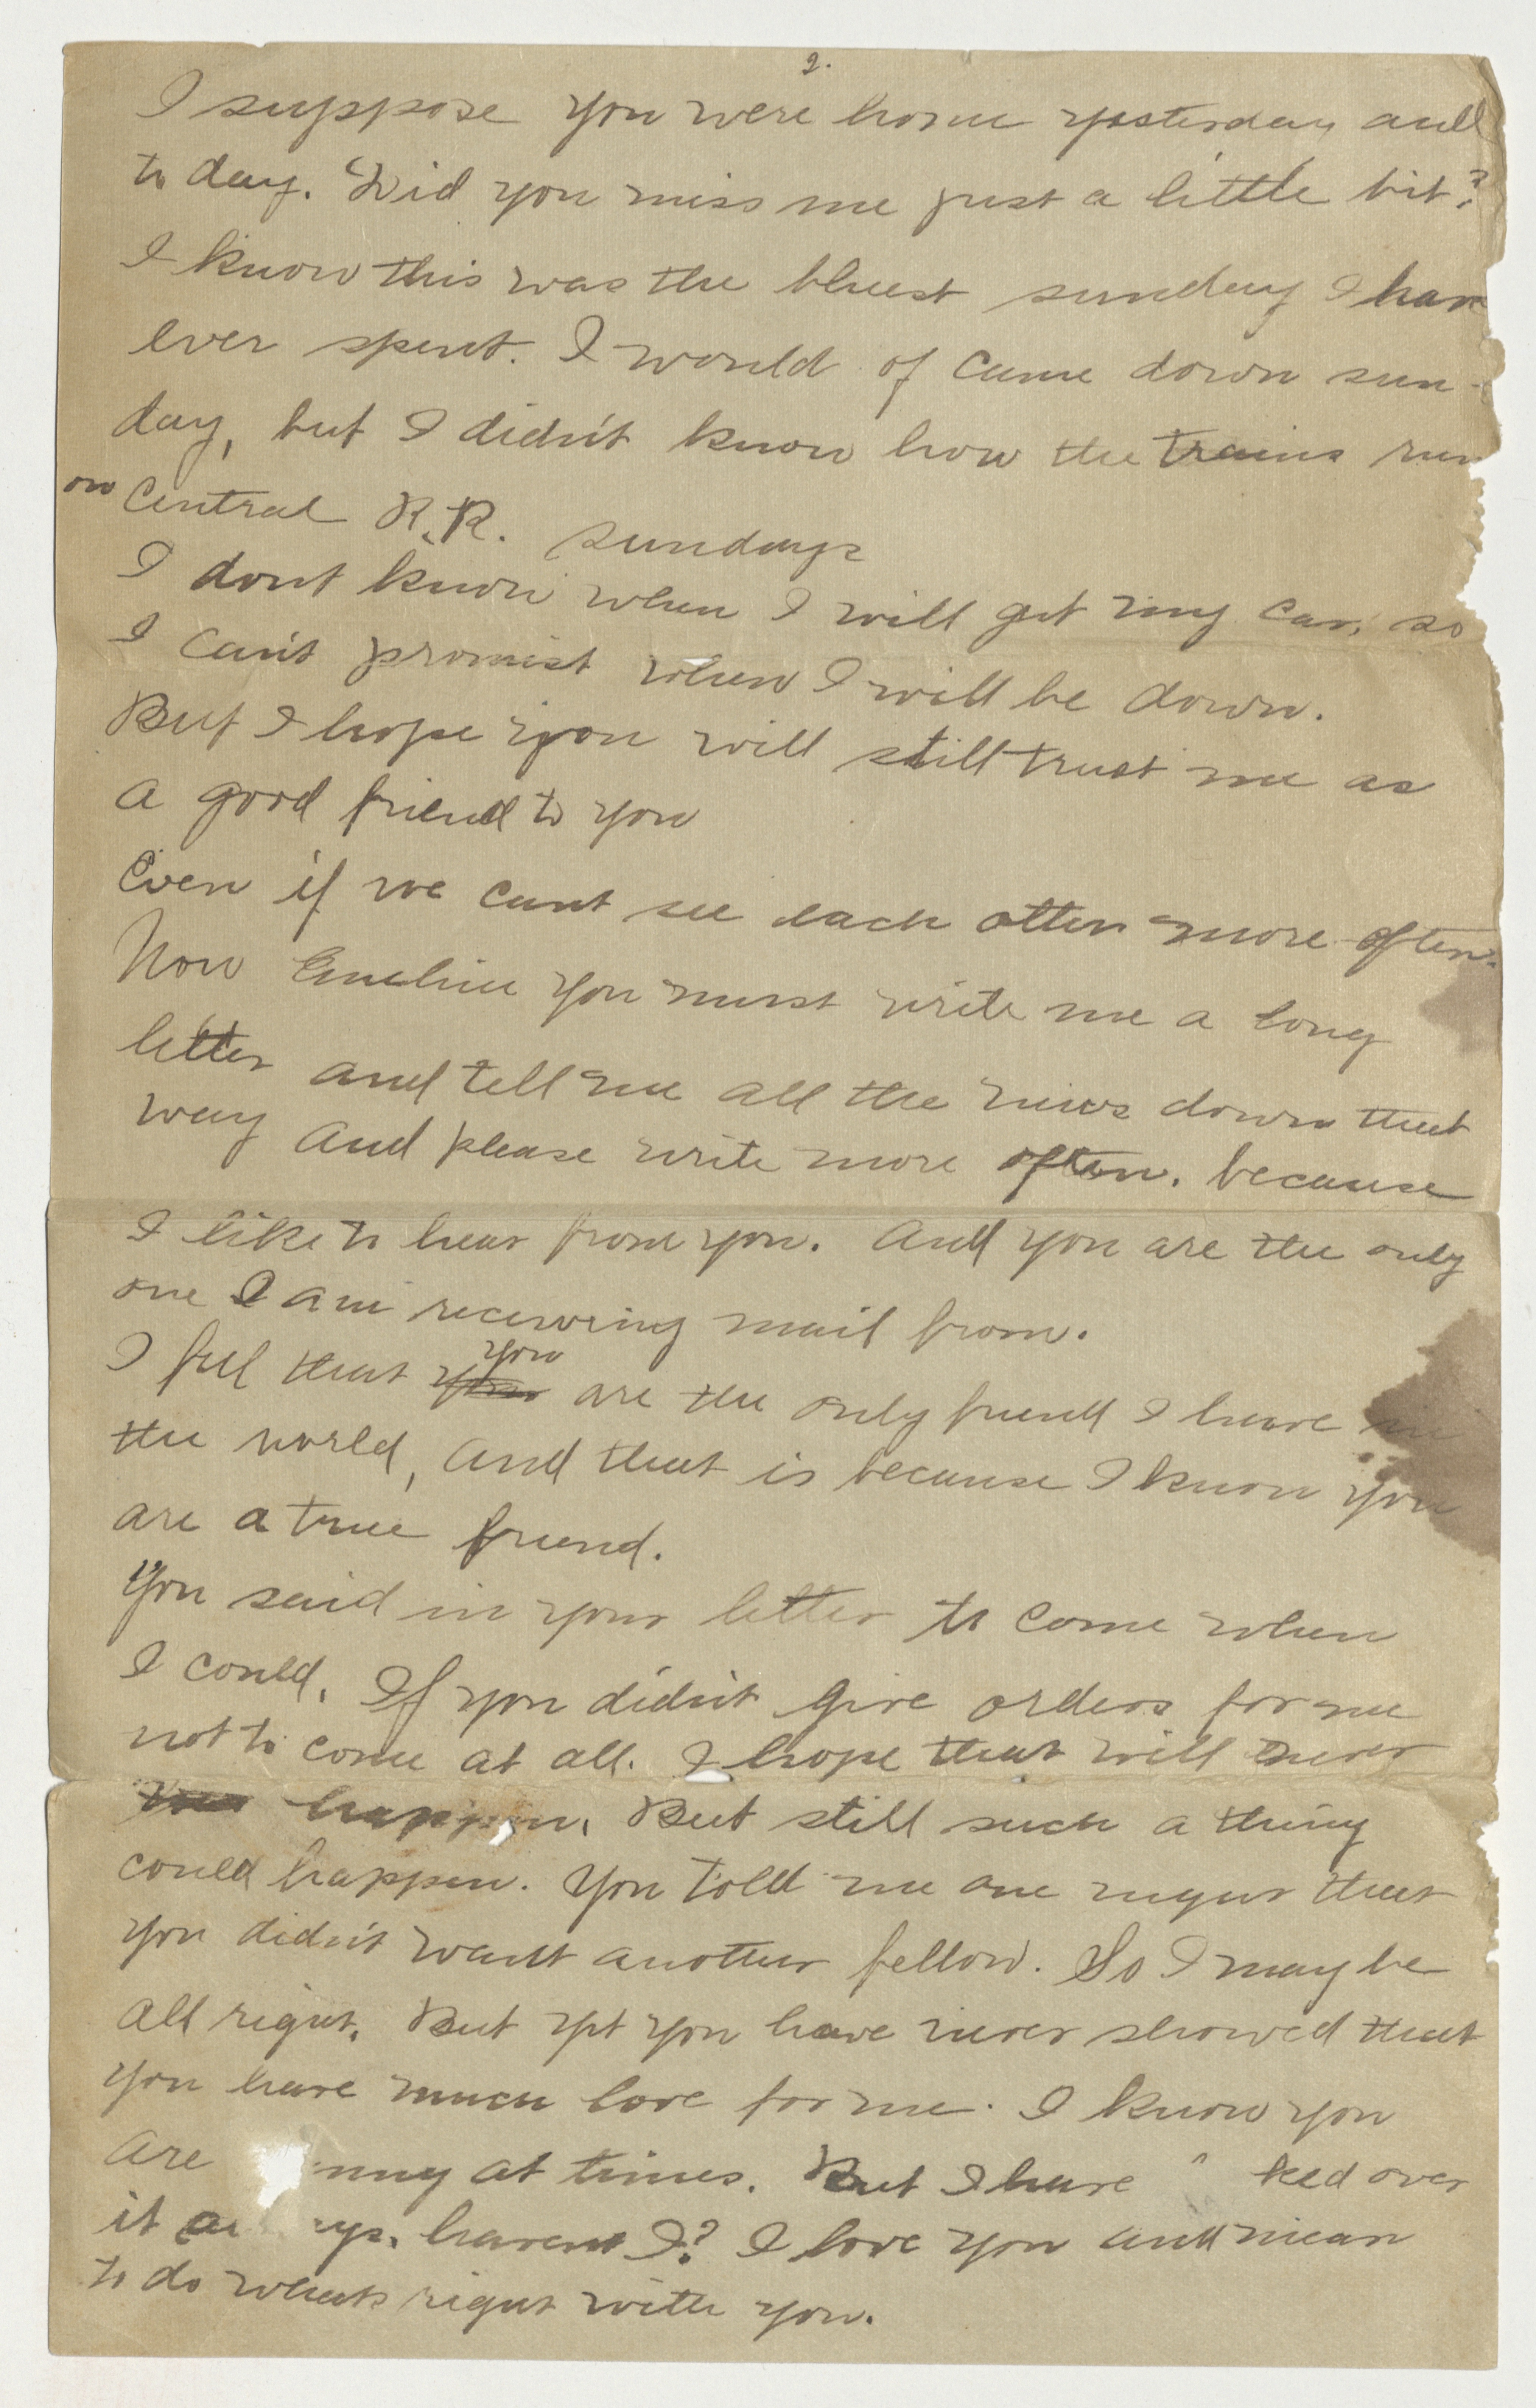 2.
I suppose you were home yesterday and
to day. Did you miss me just a little bit?
I know this was the bluest sunday I have
ever spent. I would of came down sun-
day, but I didn't know how the trains run
on Central R.R. sundays
I dont know when I will get my car, so
I can't promist when I will be down.
But I hope you will still trust me as
a good friend to you
Even if we cant see each other more often.
Now Emeline you must write me a long
letter and tell me all the news down that
way and please write more often, because
I like to hear from you. And you are the only
one I am receiving mail from.
I feel that you are the only friend I have in
the world, and that is because I know you
are a true friend.
You said in your letter to come when
I could. If you didn't give orders for me
not to come at all. I hope that will never
happen. But still such a thing
could happen. You told me one night that
you didn't want another fellow. So I may be
all right. But yet you have never showed that
you have much love for me. I know you
are nny at times. But I have ked over
it a ys, havent I? I love you and mean
to do whats right with you.